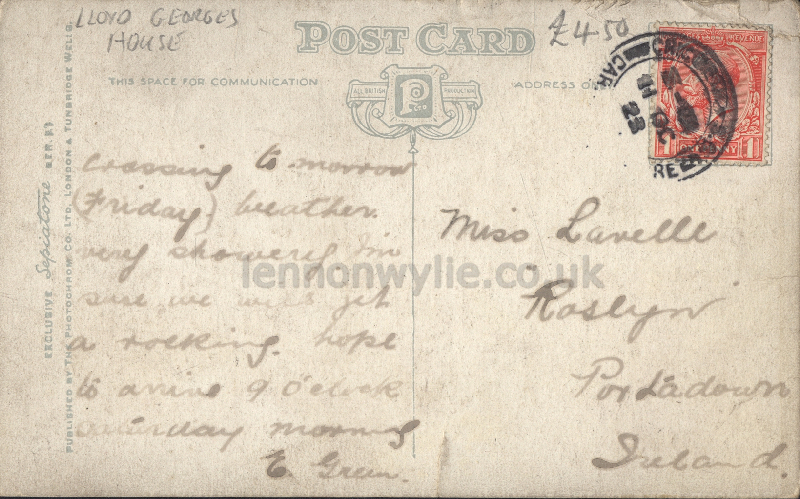 LLOYD GEORGES
HOUSE
£4.50
POST CARD
THIS SPACE FOR COMMUNICATION
ADDRESS
ALL BRITISH PRODUCTION
P
Co LTD
REVENUE
CAR
OC
23
RE
EXCLUSIVE Sepiatone SERIES
PUBLISHED BY THE PHOTOCHROM CO. LTD. LONDON & TUNBRIDGE WELLS.
crossing to morrow
(Friday) weather
very showery I'm
sure we will get
a rocking. hope
to arrive 9 o'clock
Saturday morning
E. Green.
Miss Lavelle
Roslyn
Portadown
Ireland.
lennonwylie.co.uk